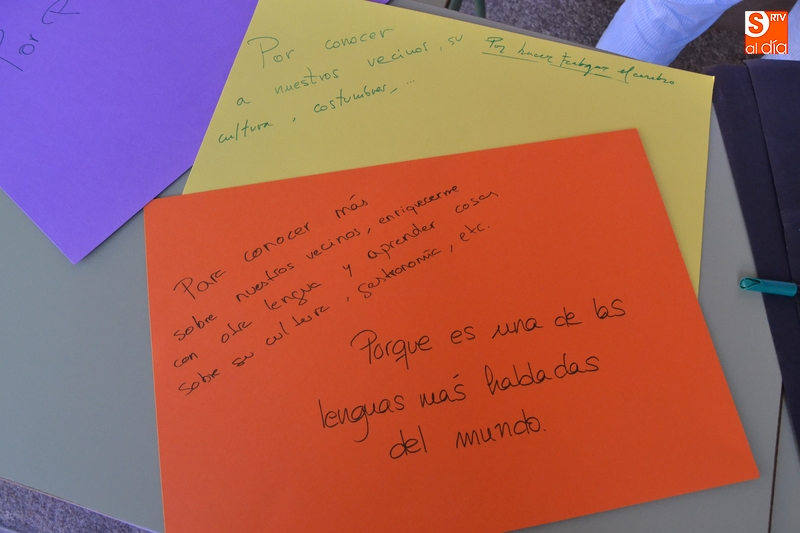 Por
Por conocer
a nuestros vecinos, su
cultura, costumbres,...
Por hacer trabajar el cerebro
Para conocer más
sobre nuestros vecinos, enriquecerme
con otra lengua y aprender cosas
sobre su cultura, gastronomía, etc.
Porque es una de las
lenguas más habladas
del mundo.
S RTV
al día